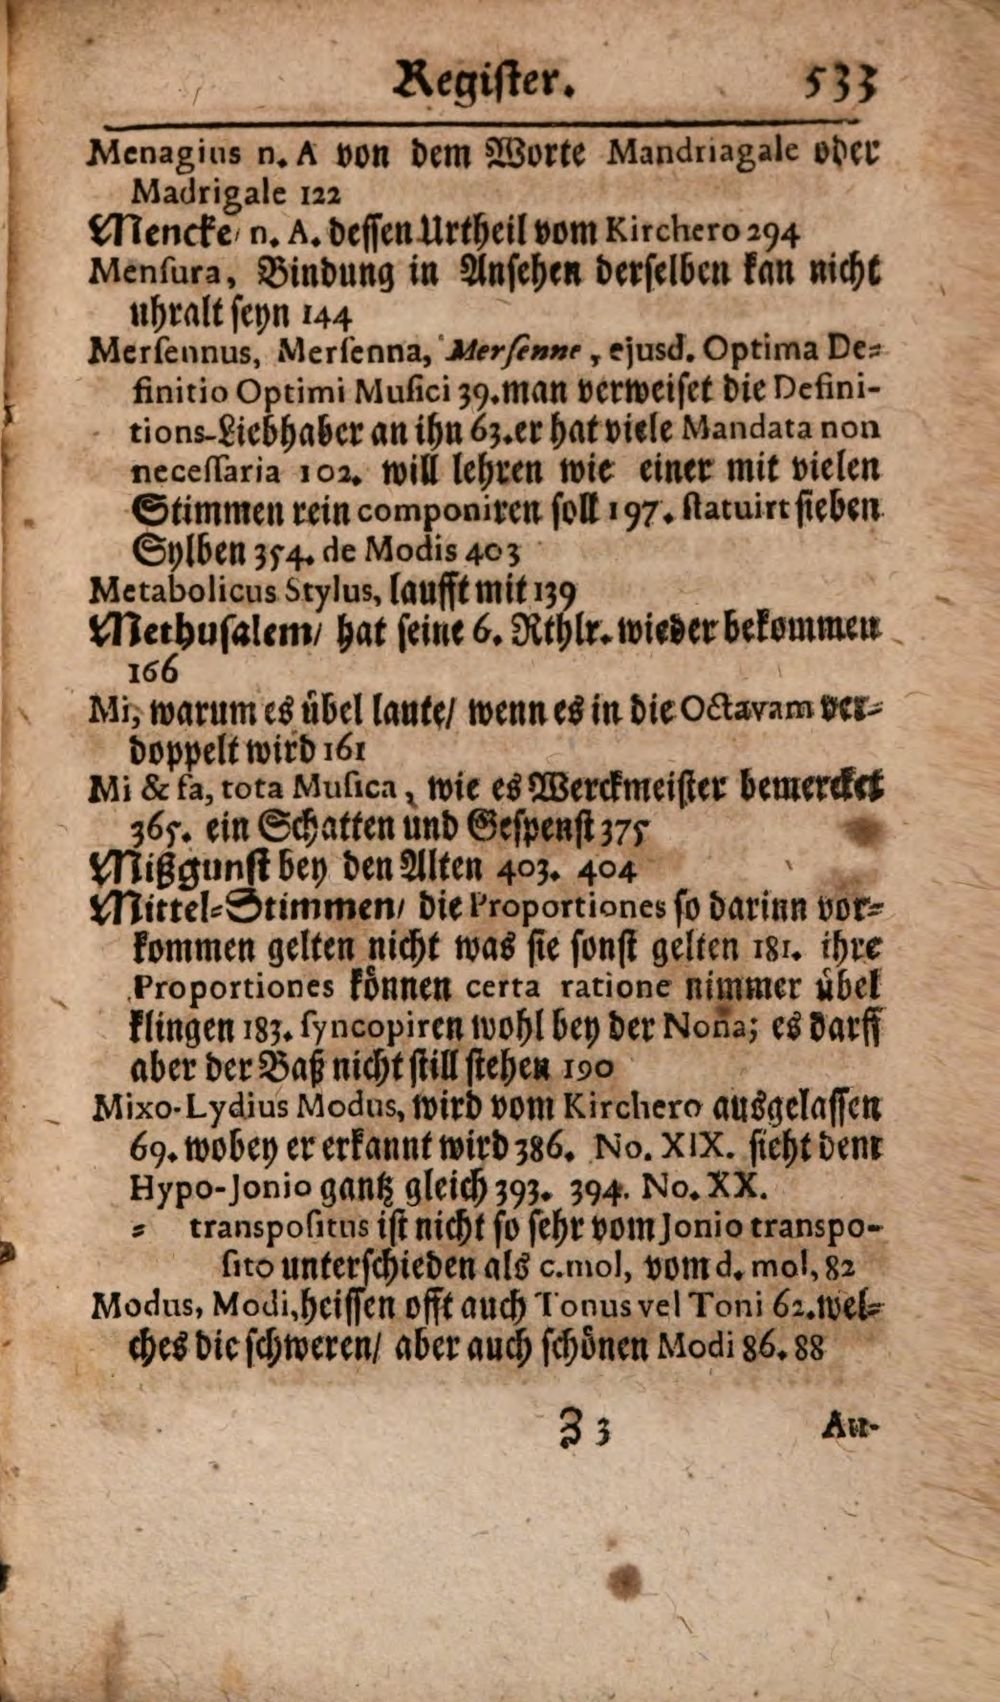 Register. 533
Menagius n. A von dem Worte Mandriagale oder
Madrigale 122
Mencke/ n. A. dessen Urtheil vom Kirchero 294
Mensura, Bindung in Ansehen derselben kan nicht
uhralt seyn 144
Mersennus, Mersenna, Mersenne, ejusd. Optima De-
finitio Optimi Musici 39. man verweiset die Defini-
tions-Liebhaber an ihn 63. er hat viele Mandata non
necessaria 102. will lehren wie einer mit vielen
Stimmen rein componiren soll 197. statuirt sieben
Sylben 354. de Modis 403
Metabolicus Stylus, laufft mit 139
Methusalem/ hat seine 6. Rthlr. wieder bekommen
166
Mi, warum es übel laute/ wenn es in die Octavam ver-
doppelt wird 161
Mi & fa, tota Musica, wie es Werckmeister bemercket
365. ein Schatten und Gespenst 375
Mißgunst bey den Alten 403. 404
Mittel-Stimmen/ die Proportiones so darinn vor-
kommen gelten nicht was sie sonst gelten 181. ihre
Proportiones können certa ratione nimmer übel
klingen 183. syncopiren wohl bey der Nona; es darff
aber der Baß nicht still stehen 190
Mixo-Lydius Modus, wird vom Kirchero ausgelassen
69. wobey er erkannt wird 386. No. XIX. sieht dem
Hypo-Jonio gantz gleich 393. 394. No. XX.
- transpositus ist nicht so sehr vom Jonio transpo-
sito unterschieden als c. mol, vom d. mol, 82
Modus, Modi, heissen offt auch Tonus vel Toni 62. wel-
ches die schweren/ aber auch schönen Modi 86. 88
Z 3 Au-